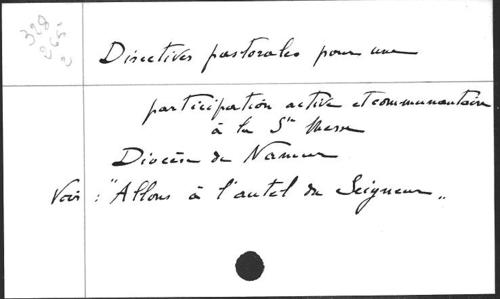 328
265
2
Directives pastorales pour une
participation active et communautaire
à la Ste Messe
Diocèse de Namur
Voir : "Allons à l'autel du Seigneur"